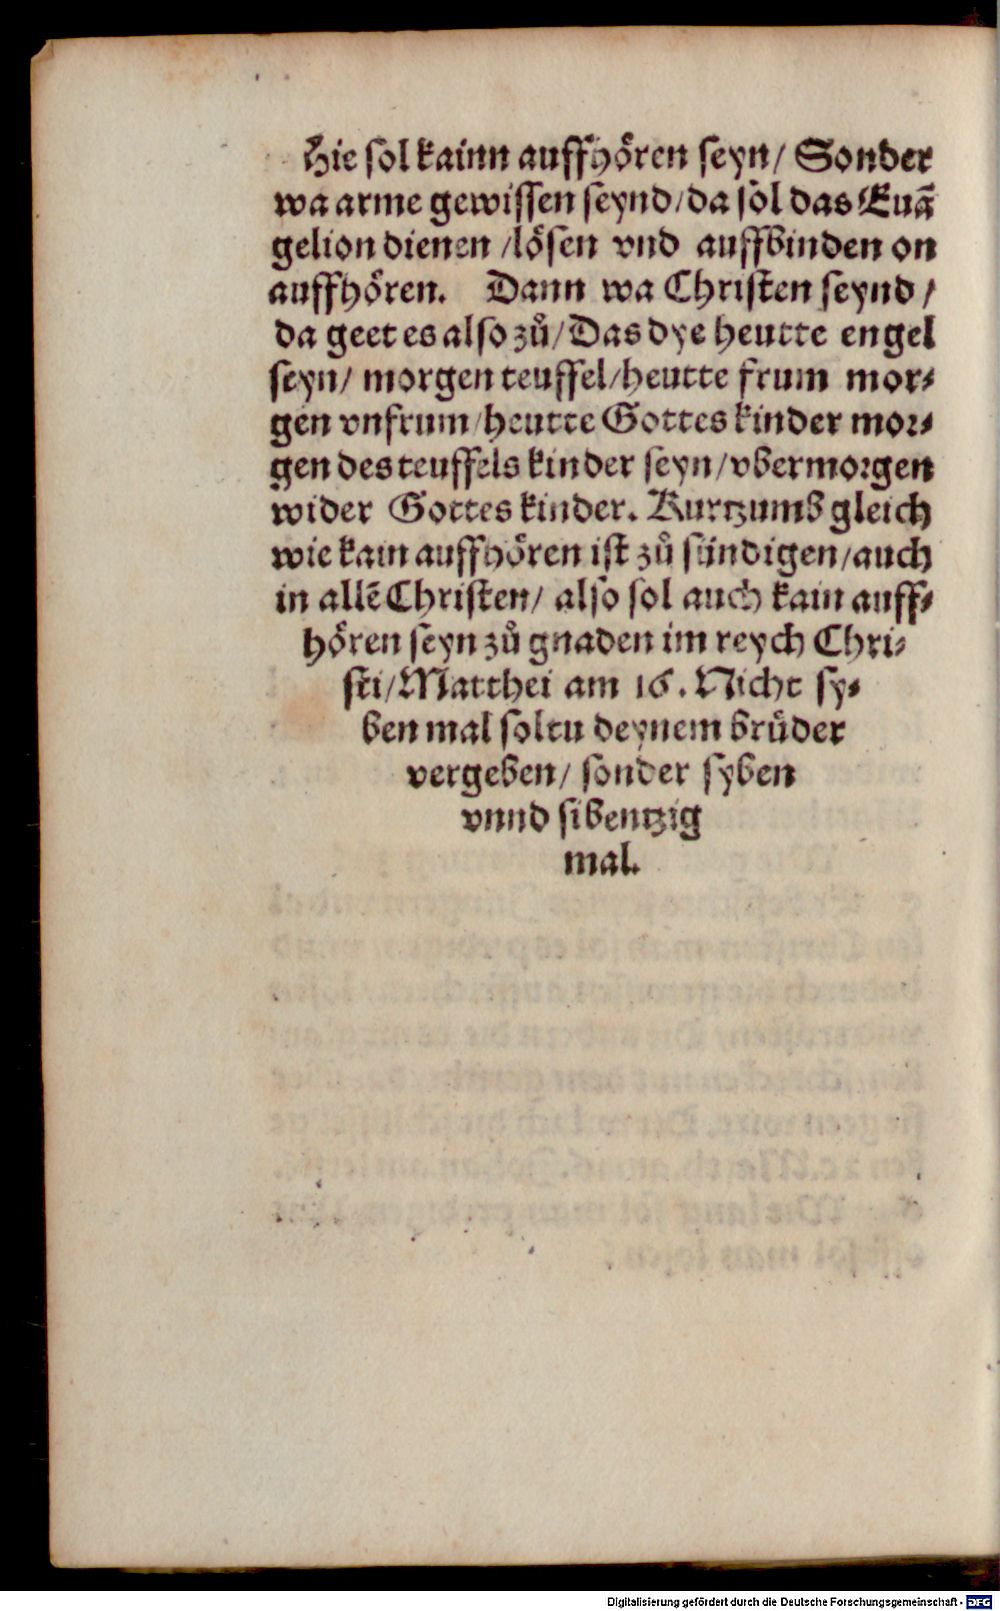 Hie sol kainn auffhören seyn/ Sonder
wa arme gewissen seynd/da sol das Euā
gelion dienen /lösen vnd auffbinden on
auffhören. Dann wa Christen seynd /
da geet es also zuͦ/Das dye heutte engel
seyn/ morgen teuffel/heutte frum mor⸗
gen vnfrum/heutte Gottes kinder mor⸗
gen des teuffels kinder seyn/vbermorgen
wider Gottes kinder. Kurtzumb gleich
wie kain auffhören ist zuͦ sündigen/auch
in allē Christen/ also sol auch kain auff⸗
hören seyn zuͦ gnaden im reych Chri⸗
sti/Matthei am 16. Nicht sy⸗
ben mal soltu deynem bruͤder
vergeben/ sonder syben
vnnd sibentzig
mal.
Digitalisierung gefördert durch die Deutsche Forschungsgemeinschaft - DFG